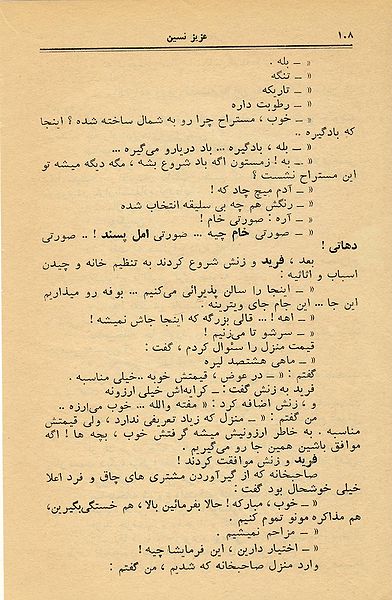 ۱۰۸ عزیز نسین
« ـ بله .
« ـ تنگه
« ـ تاریکه
« ـ رطوبت داره
« ـ خوب ، مستراح چرا رو به شمال ساخته شده ؟ اینجا
که بادگیره ..
« ـ بله ، بادگیره ... باد دربارو می‌گیره ...
« ـ به ! زمستون اگه باد شروع بشه ، مگه دیگه میشه تو
این مستراح نشست ؟
« ـ آدم میچ چاد که !
« ـ رنگش هم چه بی سلیقه انتخاب شده
« ـ آره : صورتی خام !
« ـ صورتی خام چیه ... صورتی امل پسند ! .. صورتی
دهاتی !
بعد ، فرید و زنش شروع کردند به تنظیم خانه و چیدن
اسباب و اثاثیه :
« ـ اینجا را سالن پذیرائی می‌کنیم ... بوفه رو میذاریم
این جا ... این جام جای ویترینه .
« ـ اهه ! ... قالی بزرگه که اینجا جاش نمیشه !
« ـ سرشو تا می‌زنیم !
قیمت منزل را سئوال کردم ، گفت :
« ـ ماهی هشتصد لیره
گفتم : « ـ در عوض ، قیمتش خوبه ..خیلی مناسبه .
فرید به زنش گفت : ـ کرایه‌اش خیلی ارزونه
و ، زنش اضافه کرد : « مفته والله ... خوب می‌ارزه ..
من گفتم : « ـ منزل که زیاد تعریفی ندارد ، ولی قیمتش
مناسبه . به خاطر ارزونیش میشه گرفتش خوب ، بچه ها ! اگه
موافق باشین همین جا رو می‌گیریم .
فرید و زنش موافقت کردند !
صاحبخانه که از گیرآوردن مشتری های چاق و فرد اعلا
خیلی خوشحال بود گفت :
« ـ خوب ، مبارکه ! حالا بفرمائین بالا ، هم خستگی‌بگیرین ،
هم مذاکره مونو تموم کنیم .
« ـ مزاحم نمیشیم .
« ـ اختیار دارین ، این فرمایشا چیه !
وارد منزل صاحبخانه که شدیم ، من گفتم :